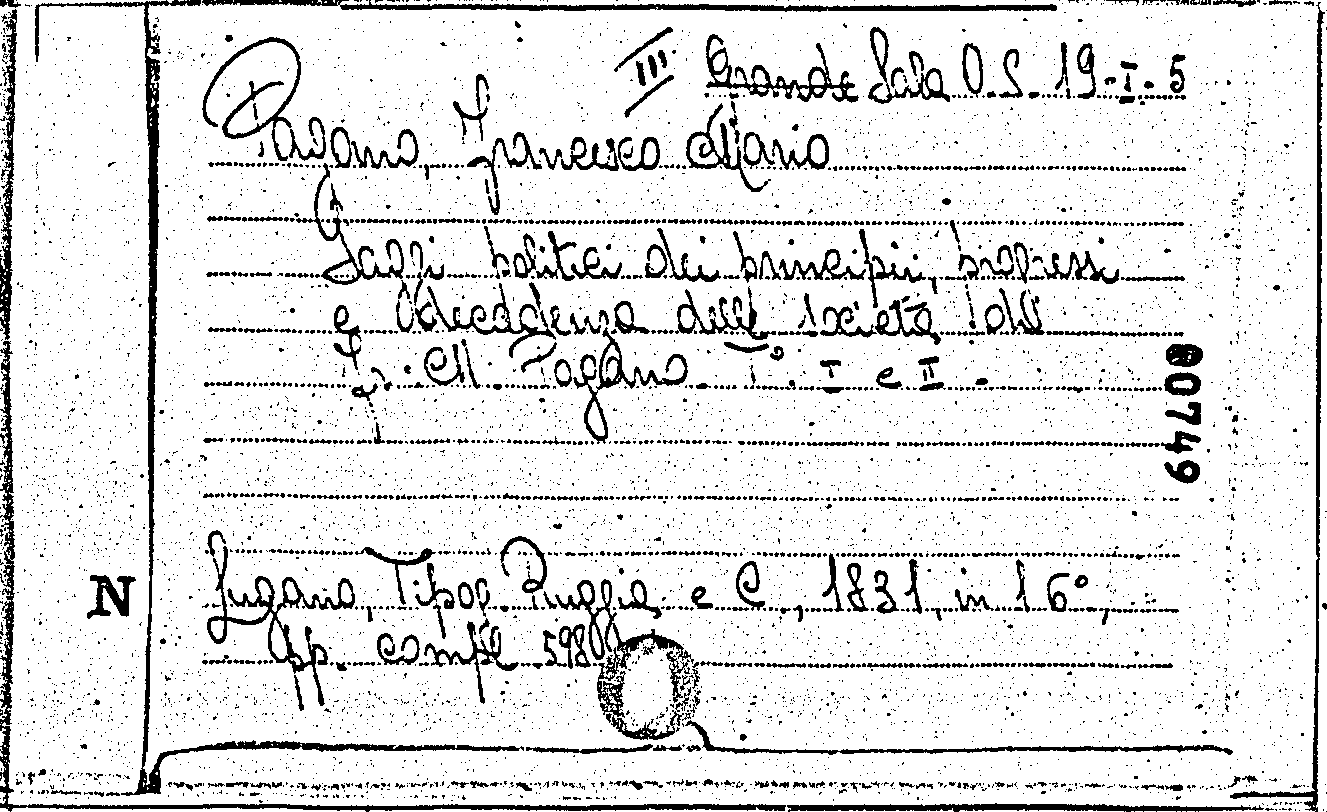 III Grande Sala O.S. 19-I-5
Pagano, Francesco Mario
Saggi politici dei principii, progressi
e decadenza delle società / di
Fr. M. Pagano. T°. I e II.
80749
N
Lugano, Tipog. Ruggia e C., 1831, in 16°,
pp. compl 598